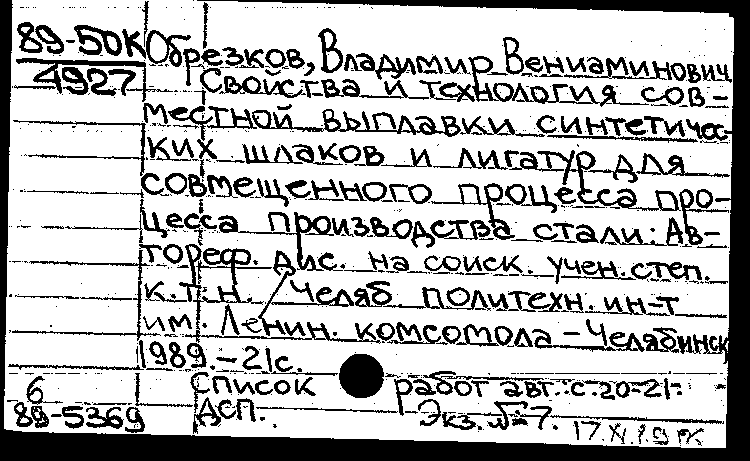 89-50К Обрезков, Владимир Вениаминович
4927 Свойства и технология сов-
местной выплавки синтетичес-
ких шлаков и лигатур для
совмещенного процесса про-
цесса производства стали: Ав-
тореф. дис. на соиск. учен. степ.
к.т.н. Челяб. политехн. ин-т
им. Ленин. комсомола - Челябинск
1989. - 21с.
6 Список работ авт.: с. 20-21.
89-5369 ДСП. Экз. №7.